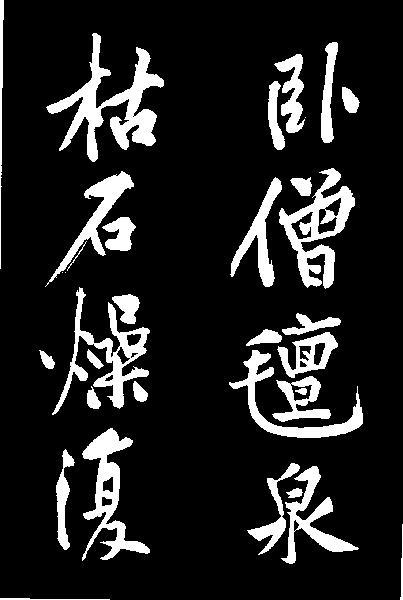 卧僧氊泉
枯石燥復